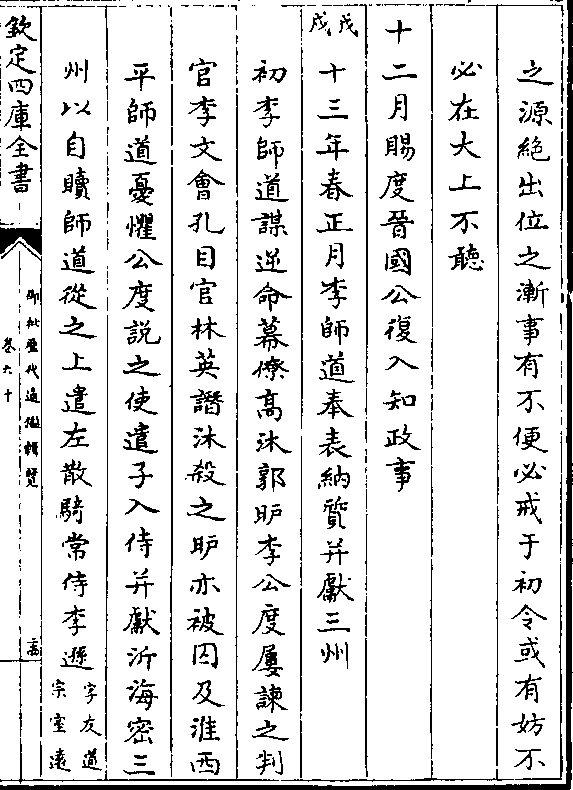 之源絶出位之漸事有不便必戒于初令或有妨不
必在大上不聽
十二月賜度晉國公復入知政事
戊戌
十三年春正月李師道奉表納質并獻三州
初李師道謀逆命幕僚高沐郭昈李公度屢諫之判
官李文會孔目官林英譖沐殺之昈亦被囚及淮西
平師道憂懼公度說之使遣子入侍并獻沂海密三
州以自贖師道從之上遣左散騎常侍李遜
字友道
宗室遠
欽定四庫全書
御批歷代通鑑輯覽
卷六十